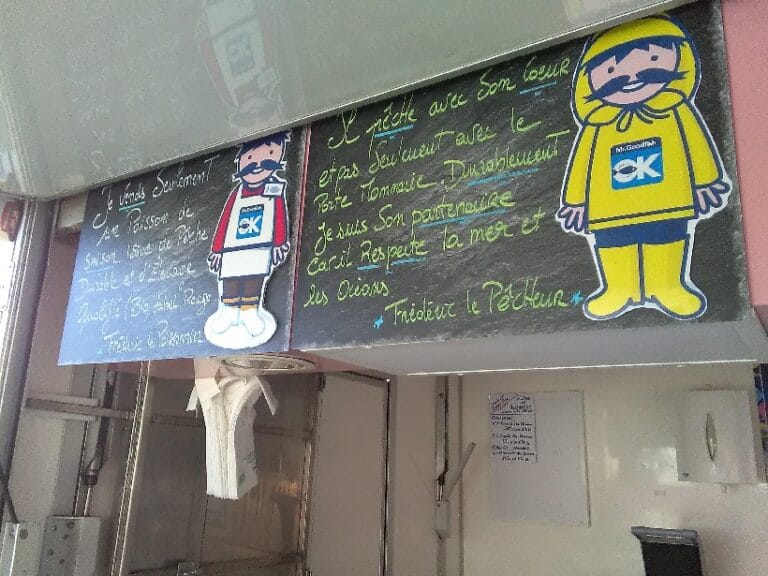 Je vends Seulement
un Poisson de
Saison issue de Pêche
Durable et d'Élevage
Qualifié (Bio, Label Rouge
Frédéric le Poissonnier
Mr.Goodfish
OK
Il pêche avec Son Coeur
et pas Seul'ment avec le
Porte Monnaie Durablement
Je suis Son partenaire
car il Respecte la mer et
les Océans
Frédéric le Pêcheur
Mr.Goodfish
OK